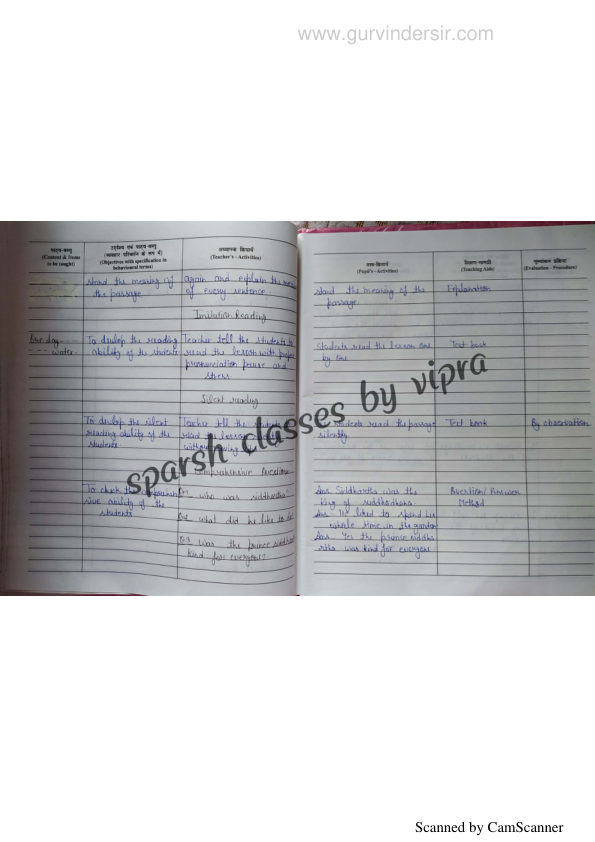 www.gurvindersir.com
पाठ्य-वस्तु
(Content & Items
to be taught)
उद्देश्य एवं पाठ्य-वस्तु
(व्यवहार परिवर्तन के रूप में)
(Objectives with specification in
behavioural terms)
अध्यापक क्रियायें
(Teacher's - Activities)
stand the meaning of
the passage.
again and explain the
of every sentence.
Imitation Reading
One day
water
To develop the reading
ability of the students
Teacher tell the students to
read the lesson with
pronunciation pause and
stress
Silent reading
To develop the silent
reading ability of the
students
Teacher tell the students
read the lesson
without
Comprehensive Question
To check the
sive ability of the
students
Q.1 who was siddhartha?
Q.2 what did he like to
Q.3 Was the prince
kind for everyone?
छात्र-क्रियायें
(Pupil's - Activities)
शिक्षण-सामग्री
(Teaching Aids)
मूल्यांकन प्रक्रिया
(Evaluation - Procedure)
stand the meaning of the
passage.
Explanation
Students read the lesson one
by one
Text book
Students read the passage
silently
Text book
By observation
Ans. Siddhartha was the
king of
Ans. He liked to spend his
whole time in the garden
Ans. Yes the prince siddha
rtha was kind for everyone
Question/Answer
Method
sparsh classes by vipra
Scanned by CamScanner